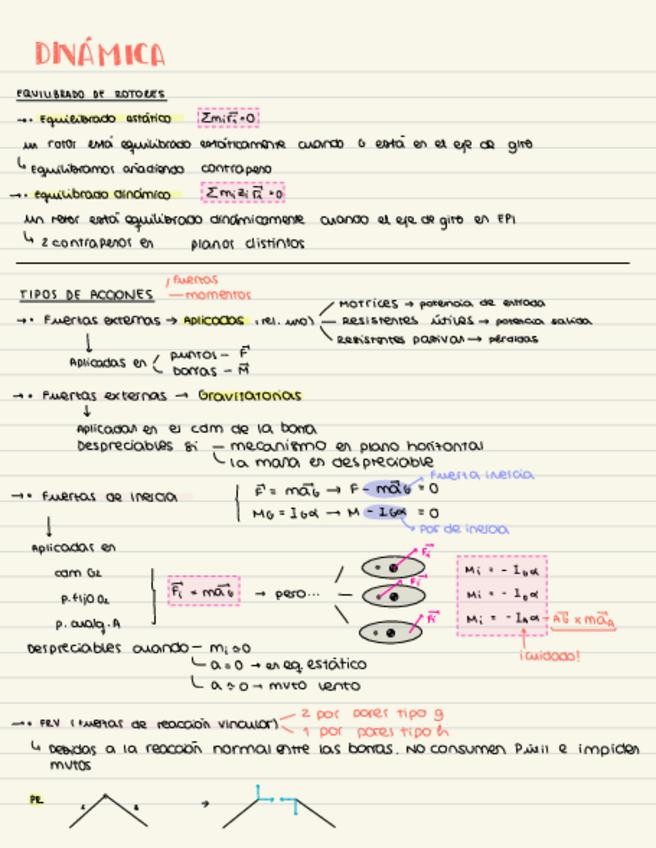 DINÁMICA
EQUILIBRADO DE ROTORES
→• Equilibrado estático Σmi r⃗i = 0
un rotor está equilibrado estáticamente cuando G está en el eje de giro
↳ Equilibramos añadiendo contrapeso
→• Equilibrado dinámico Σ mi zi r⃗i = 0
un rotor está equilibrado dinámicamente cuando el eje de giro es EPI
↳ 2 contrapesos en planos distintos
TIPOS DE ACCIONES fuerzas
momentos
→• Fuerzas externas → Aplicadas MOTRICES → potencia de entrada
RESISTENTES útiles → potencia salida
Resistentes pasivas → pérdidas
Aplicadas en puntos - F⃗
barras - M⃗
→• Fuerzas externas → Gravitatorias
Aplicadas en el cdm de la barra
Despreciables si - mecanismo en plano horizontal
la masa es despreciable
→• Fuerzas de inercia F⃗ = ma⃗G → F - ma⃗G = 0 Fuerza inercia
MG = IGα → M - IGα = 0
Par de inercia
Aplicadas en
cdm G2
p. fijo O2
p. cualq. A
F⃗i = ma⃗G → pero...
F⃗i
F⃗i
F⃗i
Mi = - IGα
Mi = - Ioα
Mi = - IAα - AG⃗ x ma⃗A
¡cuidado!
Despreciables cuando - mi ≈ 0
a = 0 → en eq. estático
a ≈ 0 → mvto lento
→• FRV (fuerzas de reacción vincular) 2 por pares tipo g
1 por pares tipo h
↳ Debidas a la reacción normal entre las barras. No consumen P.útil e impiden
mvtos
PR →